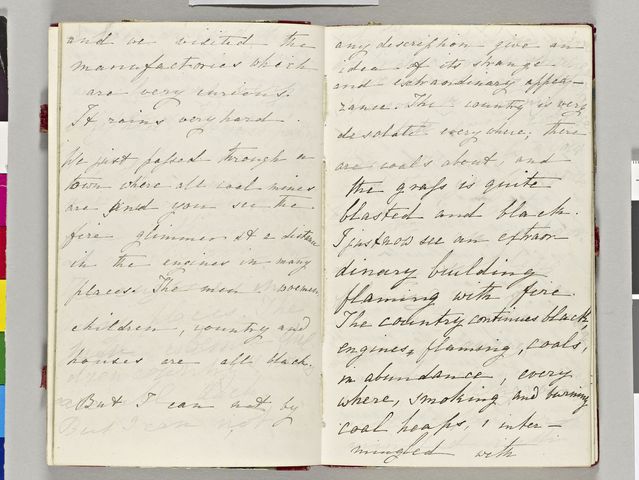 and we visited the
manufactories which
are very curious.
It rains very hard.
We just passed through a
town where all coal mines
are and you see the
fire glimmer at a distance
in the engines in many
places. The men, woemen,
children, country and
houses are all black.
But I can not by
any description give an
idea of its strange
and extraordinary appea-
rance. The country is very
desolate every where; there
are coals about, and
the grass is quite
blasted and black.
I just now see an extraor-
dinary building
flaming with fire.
The country continues black,
engines, flaming, coals,
in abundance, every
where, smoking and burning
coal heaps, inter-
mingled with